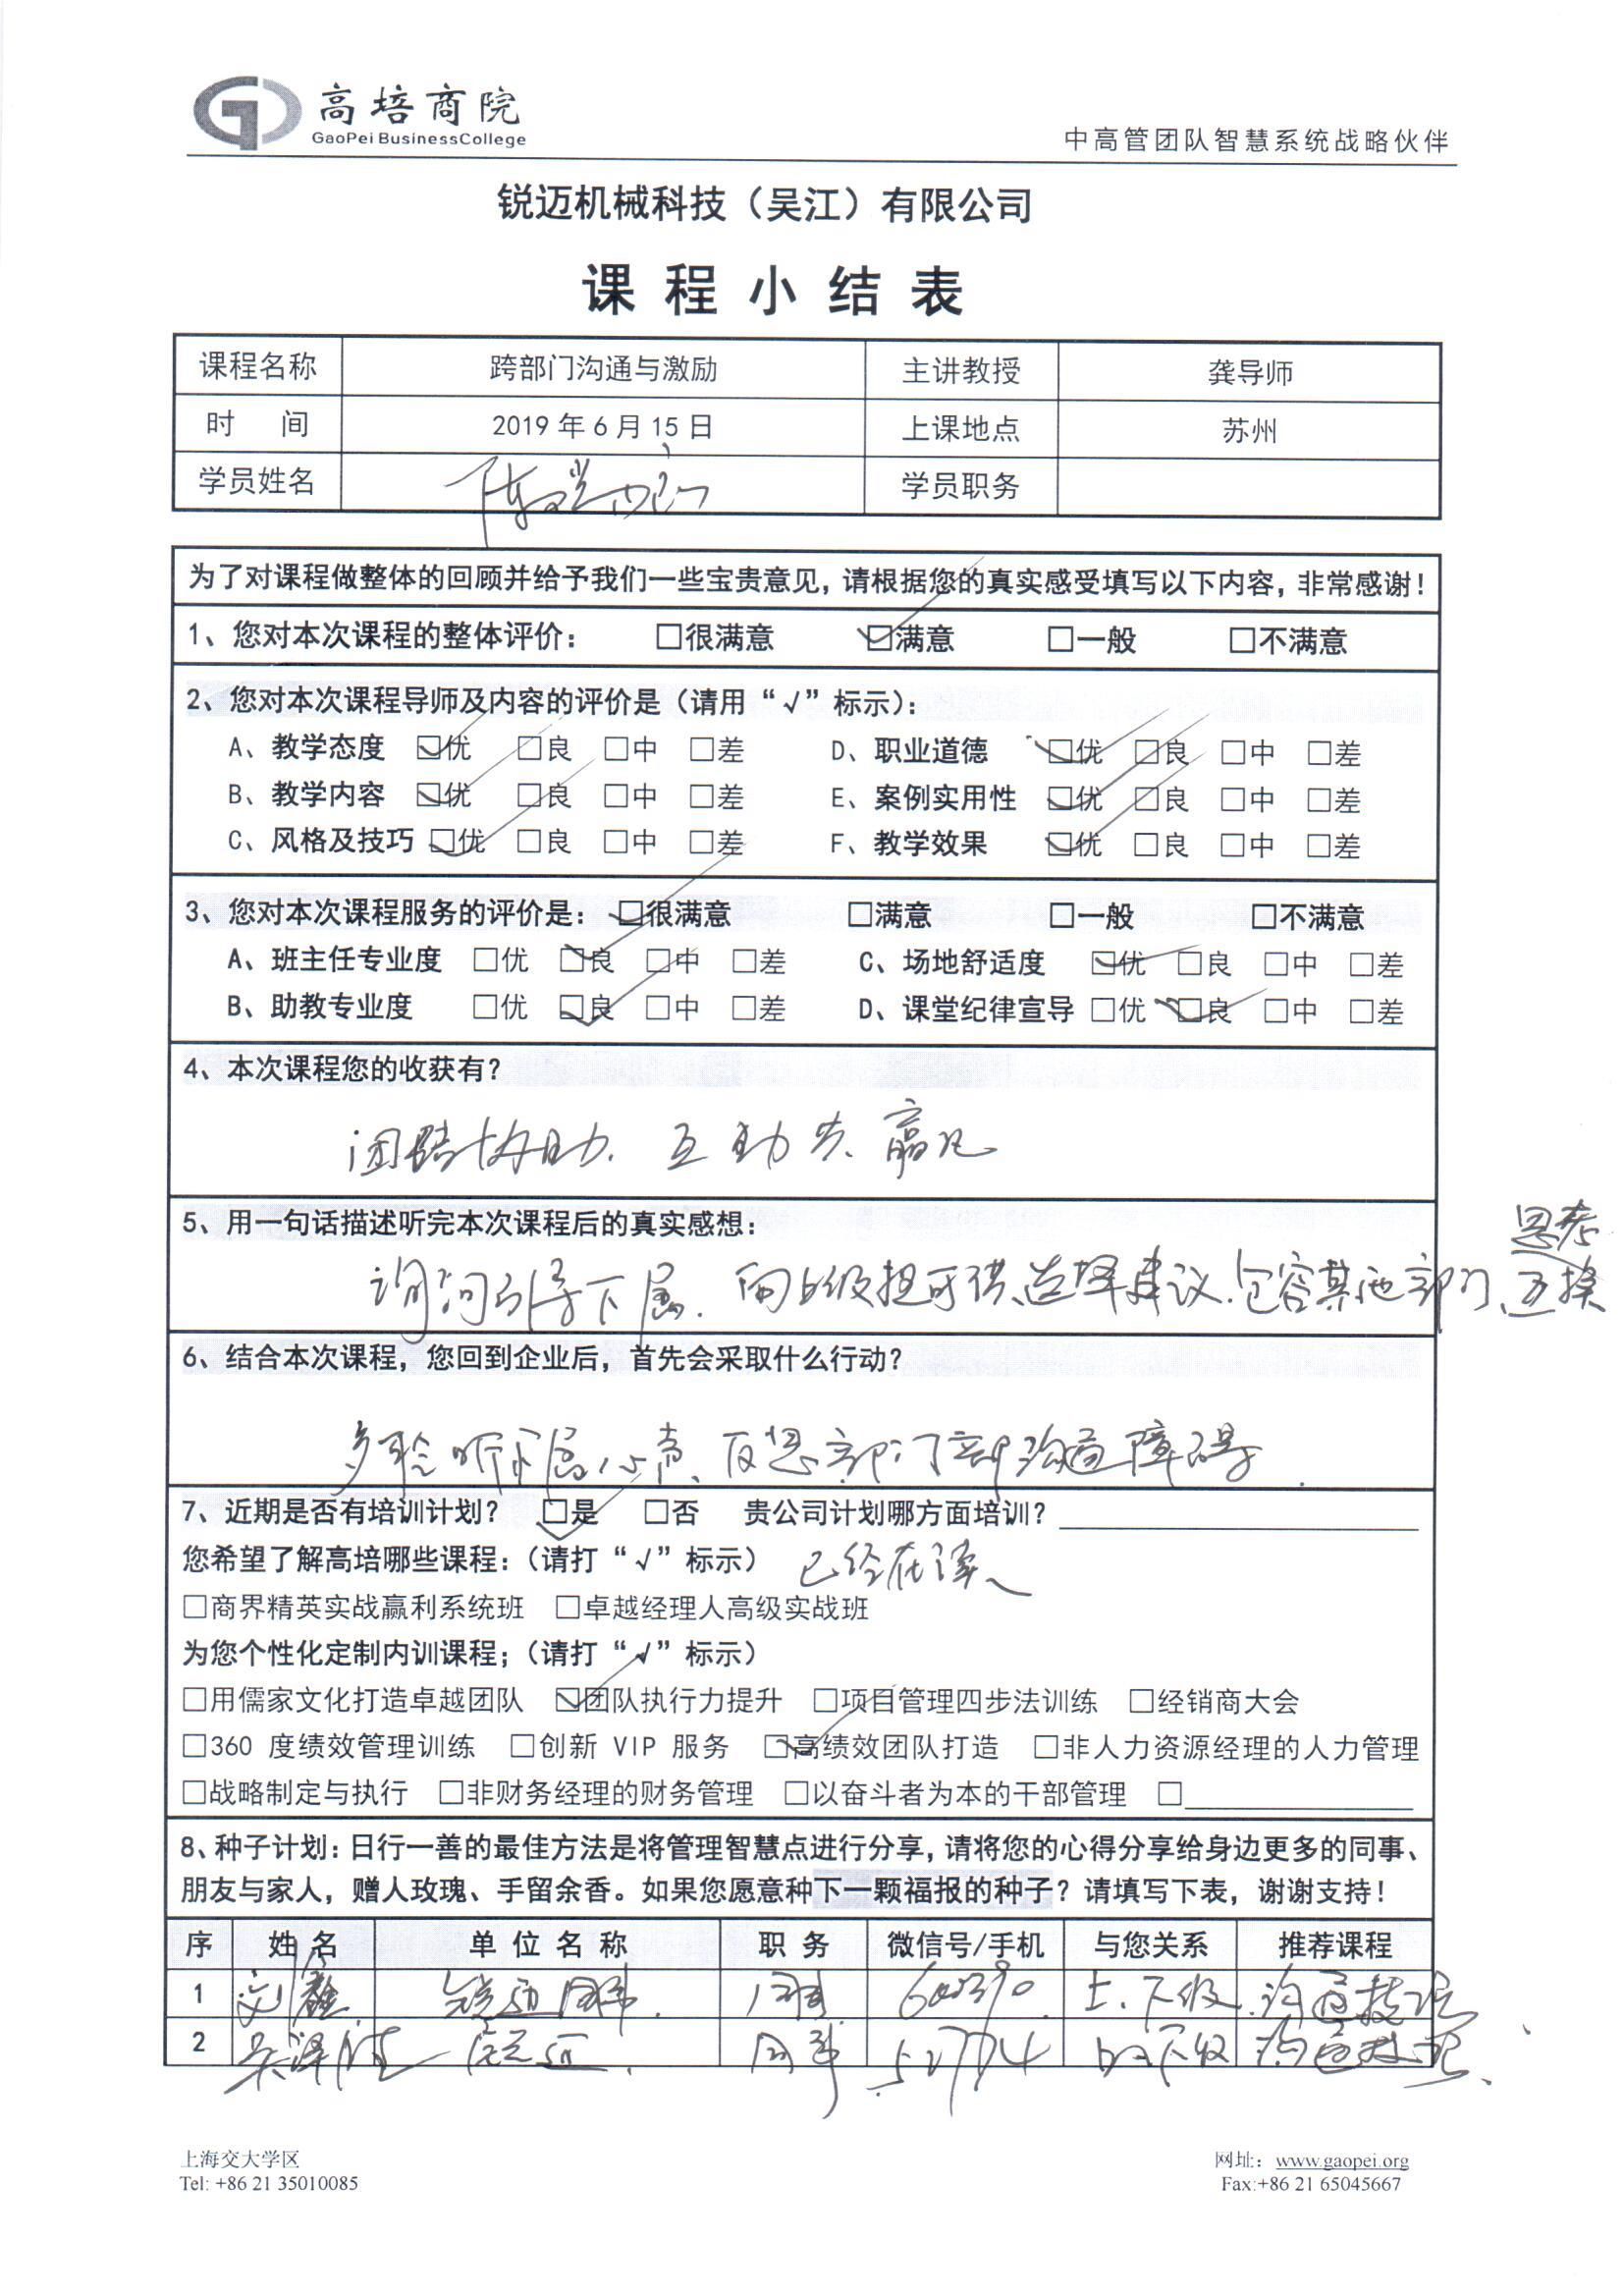 高培商院
GaoPei BusinessCollege
中高管团队智慧系统战略伙伴
锐迈机械科技（吴江）有限公司
课程小结表
课程名称 跨部门沟通与激励 主讲教授 龚导师
时 间 2019年6月15日 上课地点 苏州
学员姓名 学员职务
为了对课程做整体的回顾并给予我们一些宝贵意见，请根据您的真实感受填写以下内容，非常感谢！
1、您对本次课程的整体评价： □很满意 ☑满意 □一般 □不满意
2、您对本次课程导师及内容的评价是（请用“√”标示）：
A、教学态度 ☑优 □良 □中 □差 D、职业道德 ☑优 □良 □中 □差
B、教学内容 ☑优 □良 □中 □差 E、案例实用性 ☑优 □良 □中 □差
C、风格及技巧 ☑优 □良 □中 □差 F、教学效果 ☑优 □良 □中 □差
3、您对本次课程服务的评价是： ☑很满意 □满意 □一般 □不满意
A、班主任专业度 □优 ☑良 □中 □差 C、场地舒适度 ☑优 □良 □中 □差
B、助教专业度 □优 ☑良 □中 □差 D、课堂纪律宣导 □优 ☑良 □中 □差
4、本次课程您的收获有？
协助. 互动共赢
5、用一句话描述听完本次课程后的真实感想：
思考
询问引导下属. 向上级提可供选择建议. 包容其他部门、互换
6、结合本次课程，您回到企业后，首先会采取什么行动？
多聆听下属心声、反思部门沟通障碍.
7、近期是否有培训计划？ ☑是 □否 贵公司计划哪方面培训？
您希望了解高培哪些课程：（请打“√”标示） 已经在读
□商界精英实战赢利系统班 □卓越经理人高级实战班
为您个性化定制内训课程；（请打“√”标示）
□用儒家文化打造卓越团队 ☑团队执行力提升 □项目管理四步法训练 □经销商大会
□360 度绩效管理训练 □创新 VIP 服务 ☑高绩效团队打造 □非人力资源经理的人力管理
□战略制定与执行 □非财务经理的财务管理 □以奋斗者为本的干部管理 □
8、种子计划：日行一善的最佳方法是将管理智慧点进行分享，请将您的心得分享给身边更多的同事、
朋友与家人，赠人玫瑰、手留余香。如果您愿意种下一颗福报的种子？请填写下表，谢谢支持！
序 姓名 单位名称 职务 微信号/手机 与您关系 推荐课程
1 同事 上.下级
2 同事 沟通技巧
上海交大学区
网址：www.gaopei.org
Tel: +86 21 35010085
Fax:+86 21 65045667